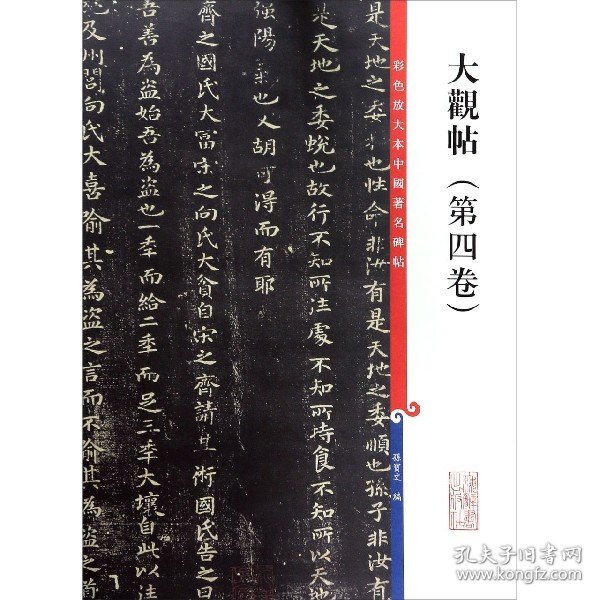 大觀帖（第四卷）
彩色放大本中國著名碑帖
孫寶文 編
是天地之委和也性命非汝有是天地之委順也孫子非汝有
是天地之委蛻也故行不知所往處不知所持食不知所以天地
強陽氣也又胡可得而有耶
齊之國氏大富宋之向氏大貧自宋之齊請其術國氏告之曰
吾善為盜始吾為盜也一年而給二年而足三年大壤自此以往
施及州閭向氏大喜喻其為盜之言而不喻其為盜之
孔夫子旧书网
www.kongfz.com